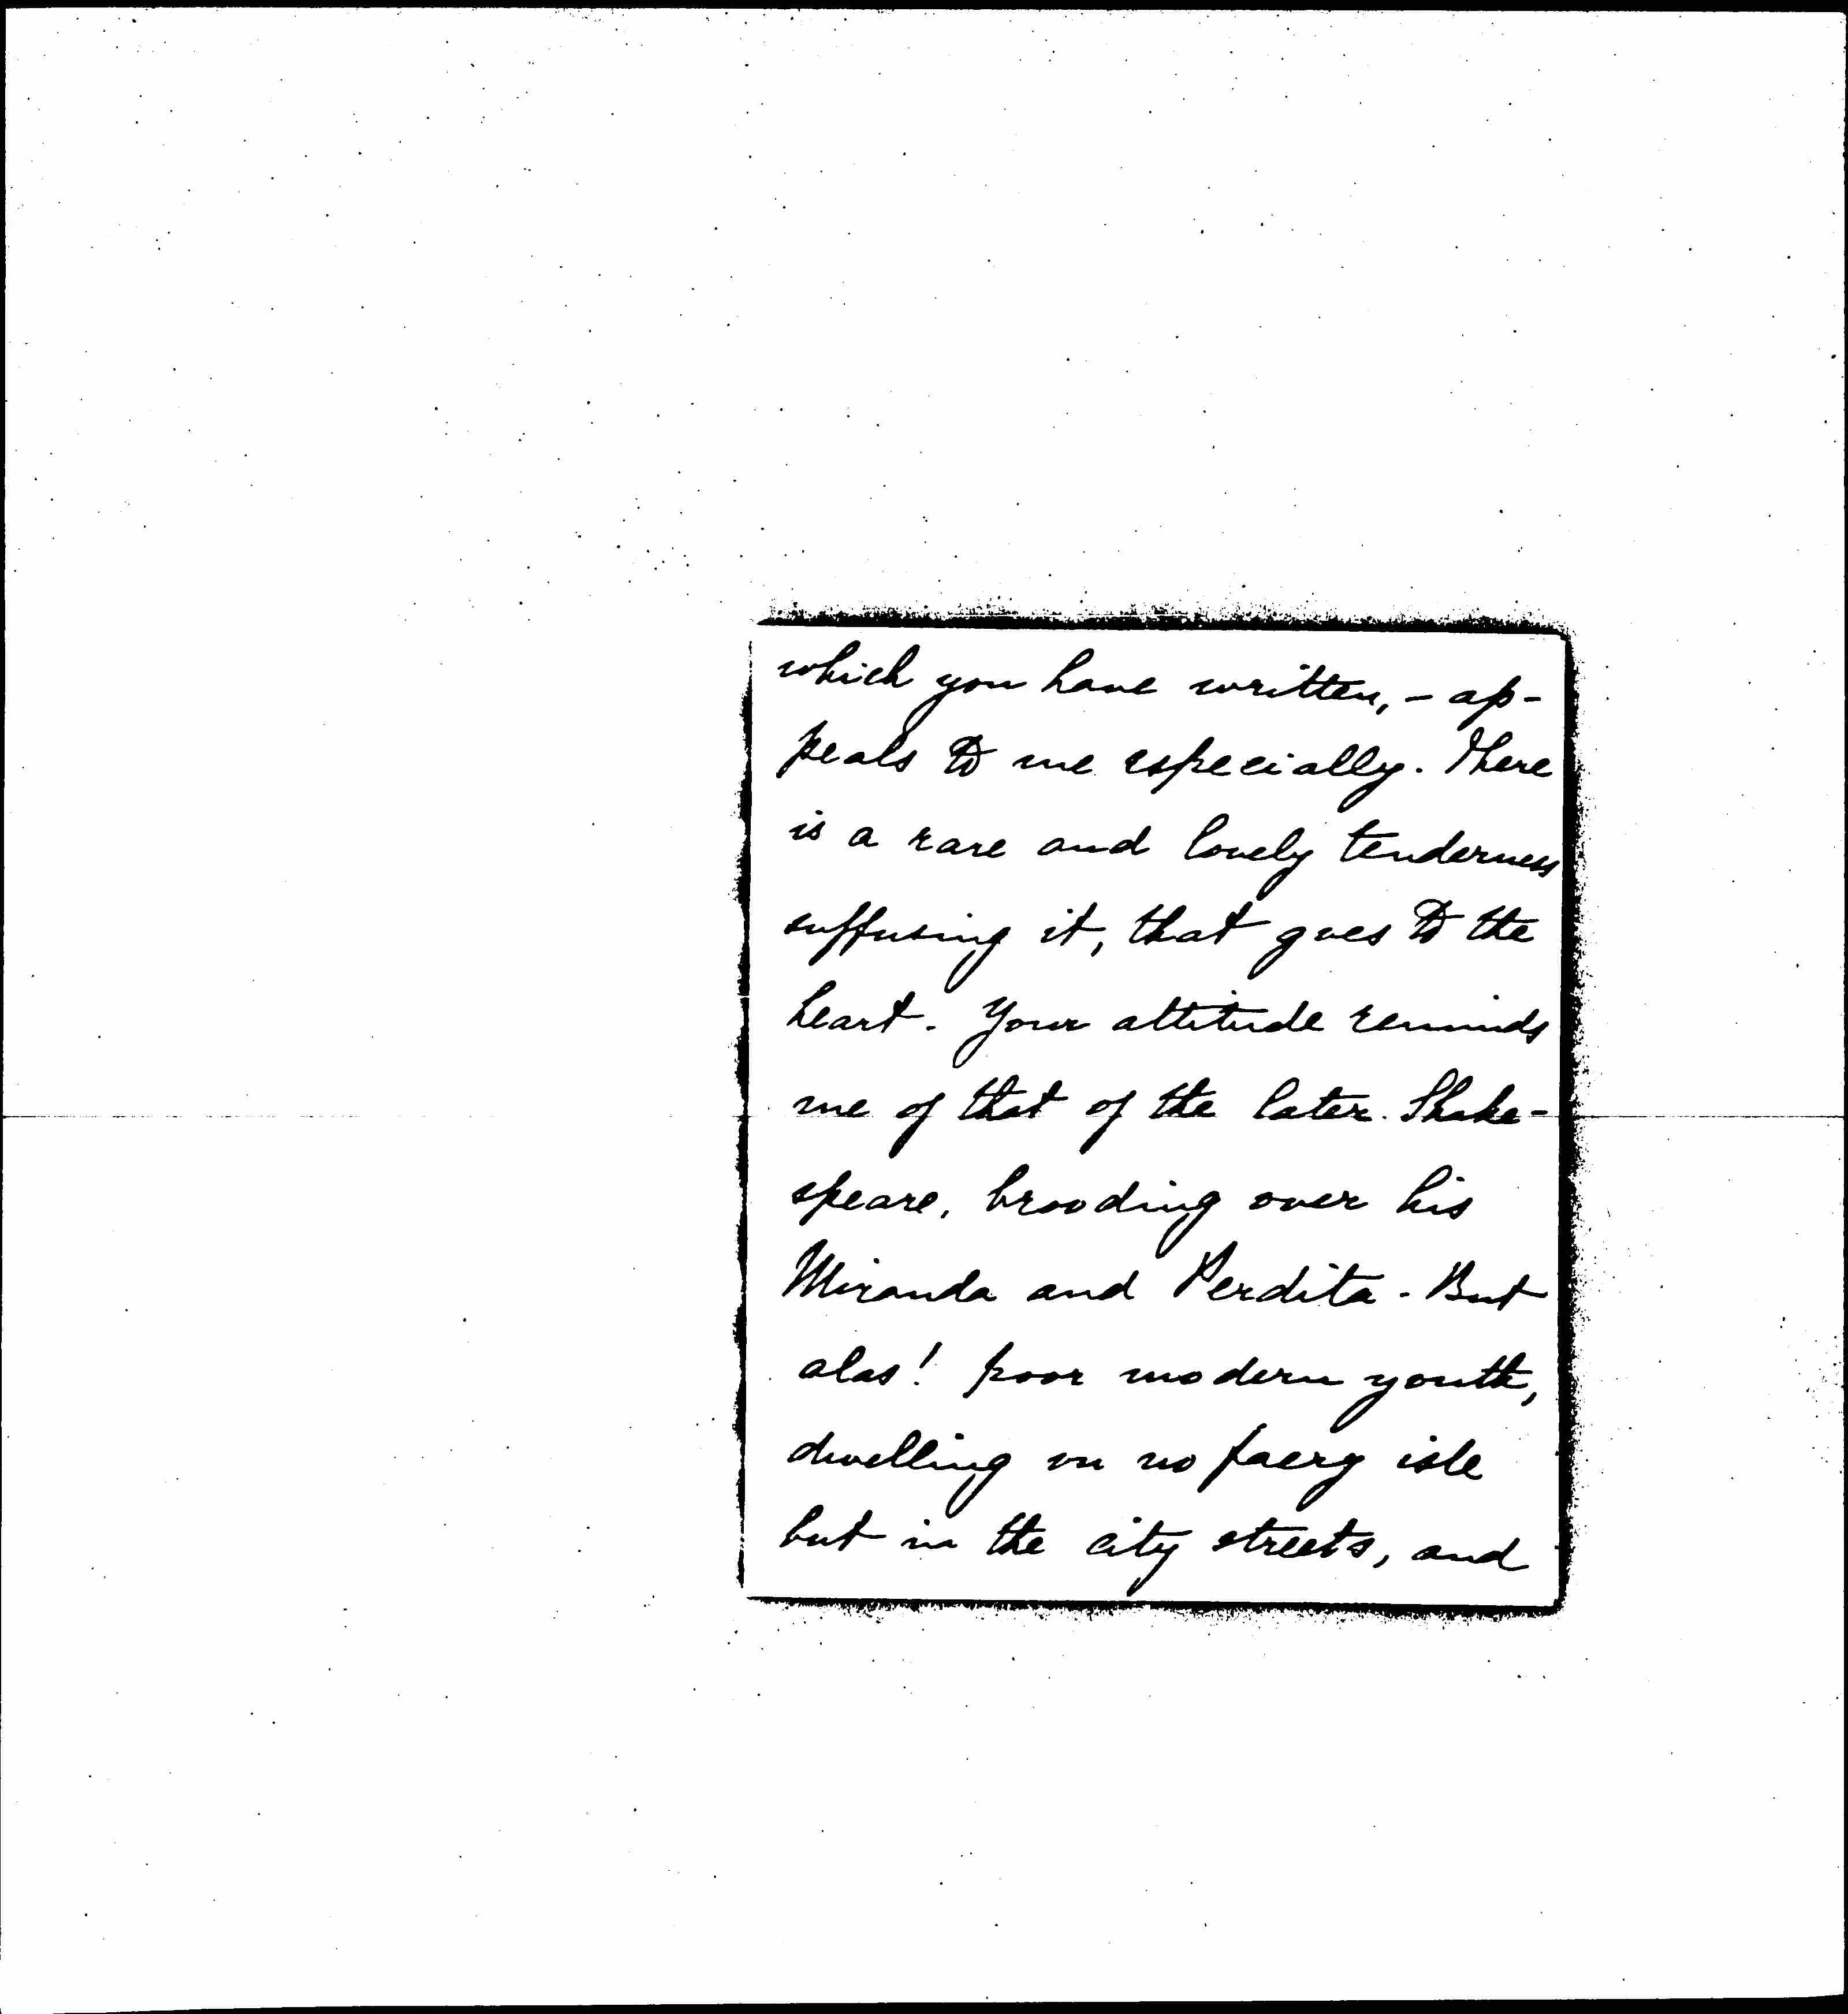 which you have written, – ap-
peals to me especially. There
is a rare and lovely tenderness
suffusing it, that goes to the
heart. Your attitude reminds
me of that of the later Shake-
speare, brooding over his
Miranda and Perdita. But
alas! poor modern youth,
dwelling on no faery isle
but in the city streets, and